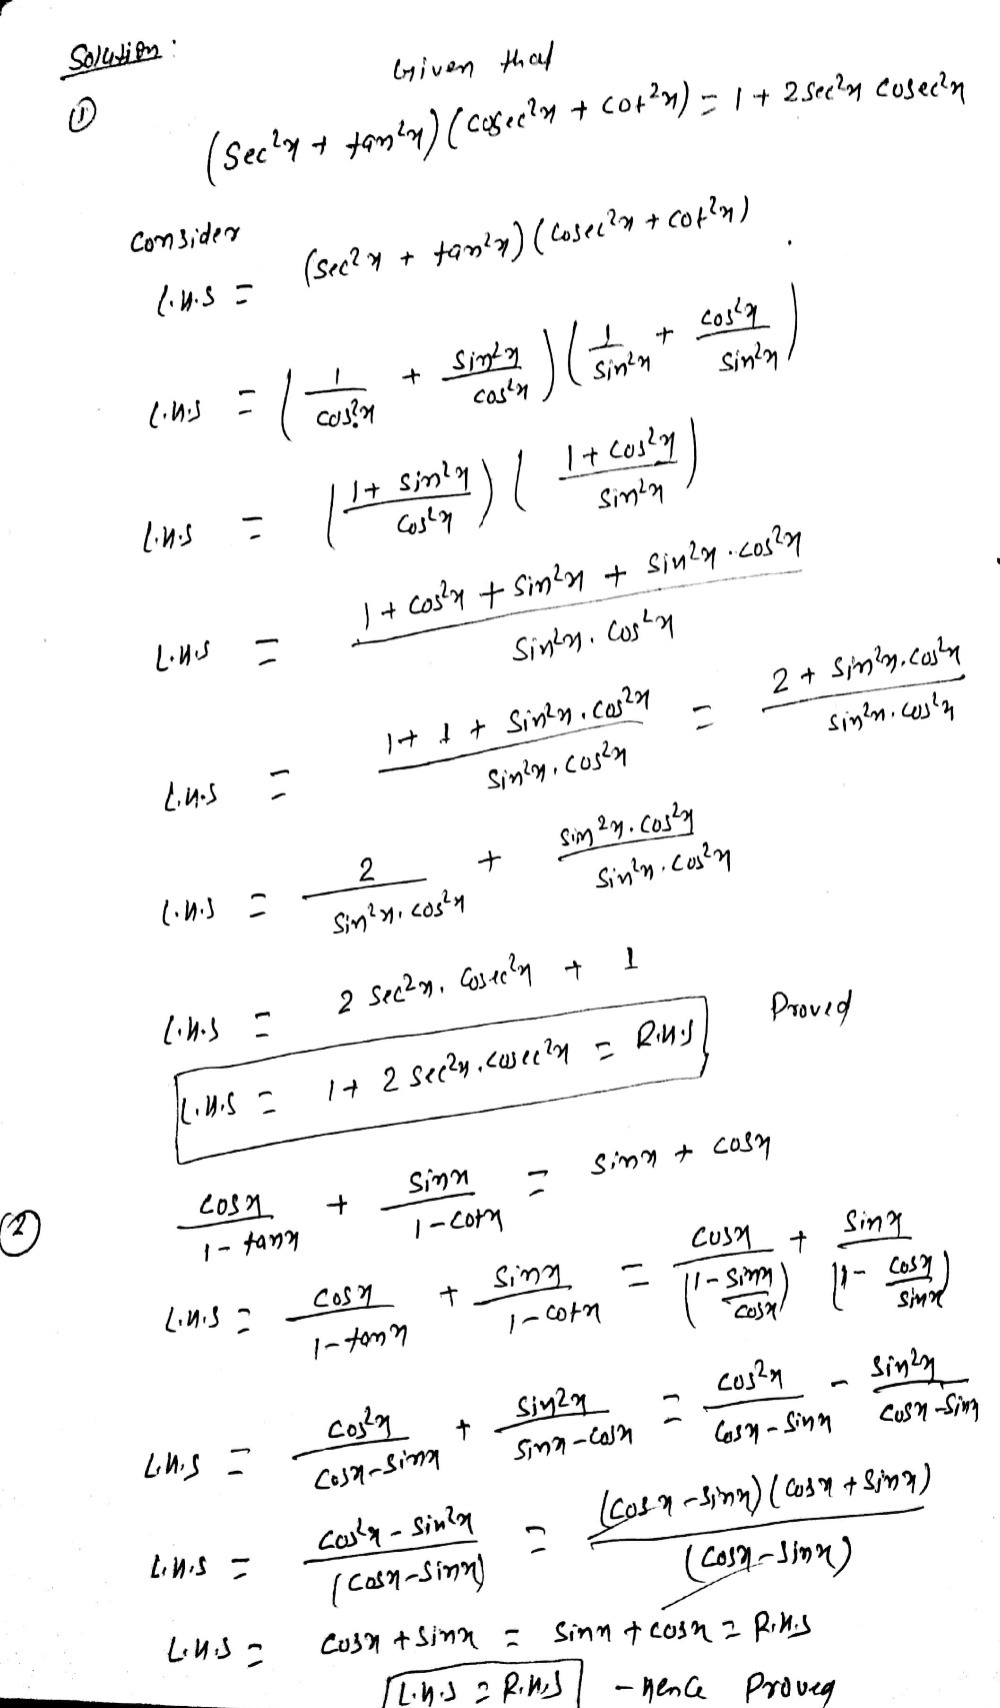 Solution:
Given that
① (sec²x + tan²x)(cosec²x + cot²x) = 1 + 2sec²x cosec²x
Consider
L.H.S = (sec²x + tan²x)(cosec²x + cot²x)
L.H.S = (1/cos²x + sin²x/cos²x)(1/sin²x + cos²x/sin²x)
L.H.S = ((1 + sin²x)/cos²x)((1 + cos²x)/sin²x)
L.H.S = (1 + cos²x + sin²x + sin²x.cos²x)/(sin²x.cos²x)
L.H.S = (1 + 1 + sin²x.cos²x)/(sin²x.cos²x) = (2 + sin²x.cos²x)/(sin²x.cos²x)
L.H.S = 2/(sin²x.cos²x) + (sin²x.cos²x)/(sin²x.cos²x)
L.H.S = 2 sec²x.cosec²x + 1
L.H.S = 1 + 2 sec²x.cosec²x = R.H.S Proved
② cosx/(1-tanx) + sinx/(1-cotx) = sinx + cosx
L.H.S = cosx/(1-tanx) + sinx/(1-cotx) = cosx/(1-sinx/cosx) + sinx/(1-cosx/sinx)
L.H.S = cos²x/(cosx-sinx) + sin²x/(sinx-cosx) = cos²x/(cosx-sinx) - sin²x/(cosx-sinx)
L.H.S = (cos²x - sin²x)/(cosx-sinx) = (cosx-sinx)(cosx+sinx)/(cosx-sinx)
L.H.S = cosx + sinx = sinx + cosx = R.H.S
L.H.S = R.H.S - Hence Proved